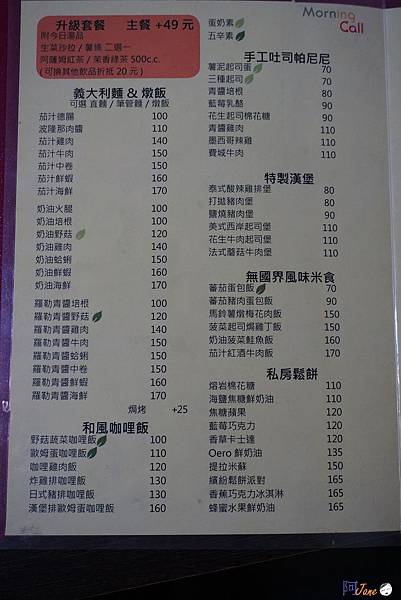 升級套餐 主餐 +49 元
附今日湯品
生菜沙拉 / 薯條 二選一
阿薩姆紅茶 / 茉香綠茶 500c.c.
( 可換其他飲品折抵 20 元 )
義大利麵 & 燉飯
可選 直麵 / 筆管麵 / 燉飯
茄汁德腸 100
波隆那肉醬 110
茄汁雞肉 140
茄汁牛肉 150
茄汁中卷 150
茄汁鮮蝦 160
茄汁海鮮 170
奶油火腿 100
奶油培根 100
奶油野菇 120
奶油雞肉 140
奶油蛤蜊 150
奶油鮮蝦 160
奶油海鮮 170
羅勒青醬培根 100
羅勒青醬野菇 120
羅勒青醬雞肉 140
羅勒青醬牛肉 150
羅勒青醬蛤蜊 150
羅勒青醬中卷 150
羅勒青醬鮮蝦 160
羅勒青醬海鮮 170
焗烤 +25
和風咖哩飯
野菇蔬菜咖哩飯 100
歐姆蛋咖哩飯 110
咖哩雞肉飯 120
炸雞排咖哩飯 130
日式豬排咖哩飯 130
漢堡排歐姆蛋咖哩飯 160
Morning
Call
蛋奶素
五辛素
手工吐司帕尼尼
薯泥起司蛋 70
三種起司 70
青醬培根 80
藍莓乳酪 90
花生起司棉花糖 90
青醬雞肉 110
墨西哥辣雞 110
費城牛肉 110
特製漢堡
泰式酸辣雞排堡 80
打拋豬肉堡 80
鹽燒豬肉堡 90
美式西岸起司堡 110
花生牛肉起司堡 110
法式蘑菇牛肉堡 110
無國界風味米食
蕃茄蛋包飯 70
蕃茄豬肉蛋包飯 90
馬鈴薯燉梅花肉飯 150
菠菜起司焗雞丁飯 150
奶油菠菜鮭魚飯 160
茄汁紅酒牛肉飯 170
私房鬆餅
熔岩棉花糖 110
海鹽焦糖鮮奶油 110
焦糖蘋果 120
藍莓巧克力 120
香草卡士達 120
Oero 鮮奶油 135
提拉米蘇 150
繽紛鬆餅派對 165
香蕉巧克力冰淇淋 165
蜂蜜水果鮮奶油 165
阿Jane